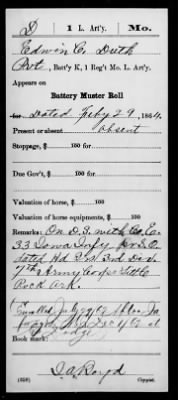 D 1 L. Art'y. Mo.
Edwin C. Duth
Pvt, Batt'y K, 1 Reg't Mo. L. Art'y.
Appears on
Battery Muster Roll
for Dated Feby 29, 1864.
Present or absent Absent
Stoppage, $ 100 for
Due Gov't, $ 100 for
Valuation of horse, $ 100
Valuation of horse equipments, $ 100
Remarks: On D.S. with Co. E.
33 Iowa Infy per S.O.
dated Hd Qrs 3rd Div.
7th Army Corps Little
Rock Ark.
Enrolled July
Book mark:
J. A. Boyd
(358) Copyist.